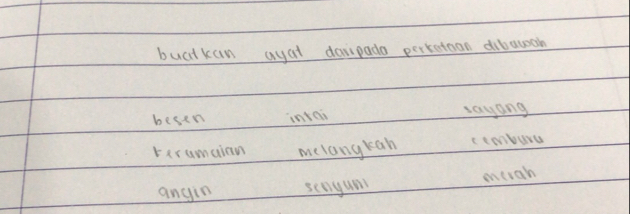 buatkan ayat daripada perkataan dibawah
besen intai sayang
keramaian melangkah cemburu
angin senyum merah